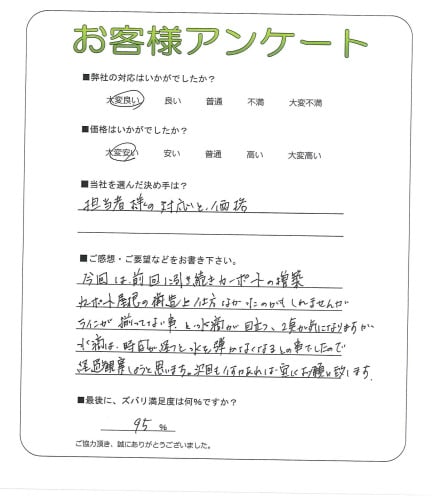 お客様アンケート
■弊社の対応はいかがでしたか？
大変良い 良い 普通 不満 大変不満
■価格はいかがでしたか？
大変安い 安い 普通 高い 大変高い
■当社を選んだ決め手は？
担当者様の対応と、価格
■ご感想・ご要望などをお書き下さい。
今回は前回に引き続きカーポートの増築
カーポート屋根の構造上仕方なかったのかもしれませんが
ラインが揃ってない事と水滴が目立つ、2点が気になりますが
水滴は、時間が経つと水を弾かなくなるとの事でしたので
経過観察しようと思います。次回も何かあれば宜しくお願い致します。
■最後に、ズバリ満足度は何％ですか？
95 ％
ご協力頂き、誠にありがとうございました。